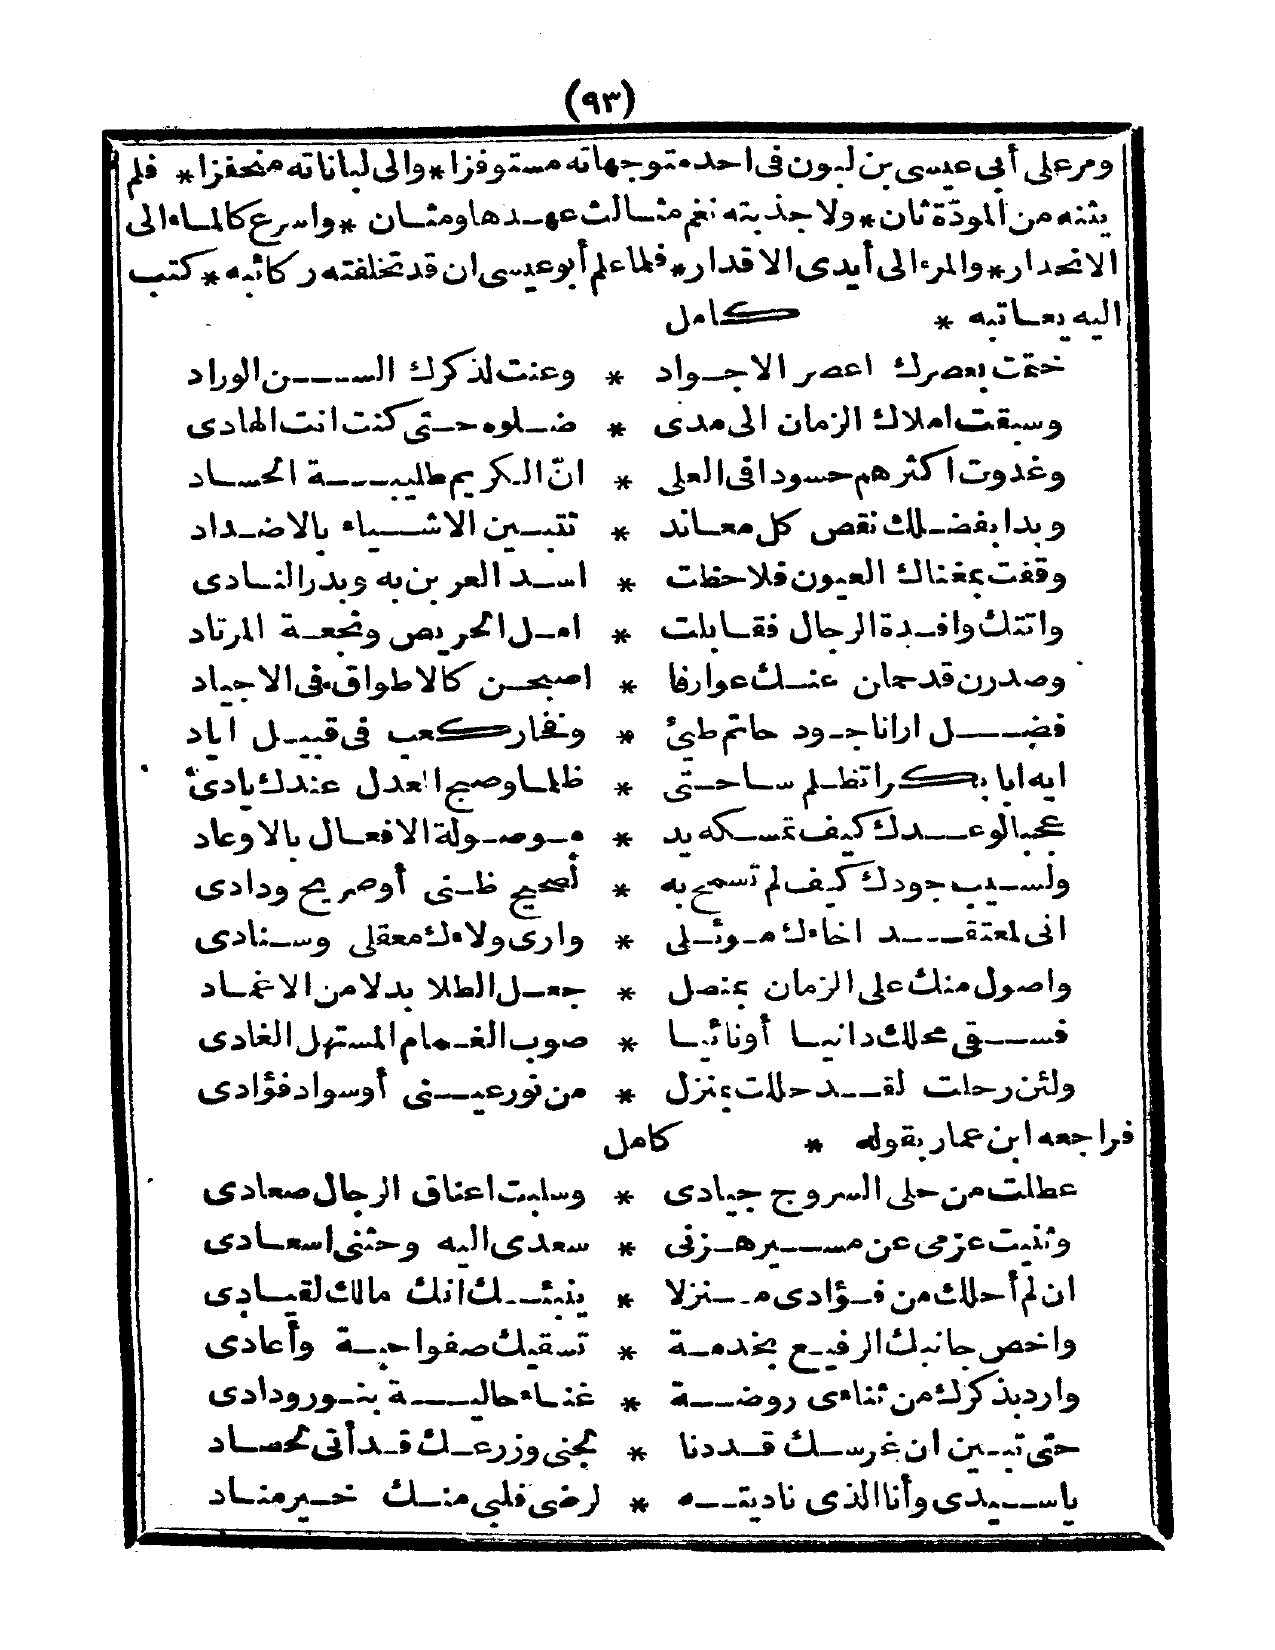 (٩٣)
ومر على أبى عيسى بن لبون فى احد متوجهاته مستوفزا * والى لباناته متحفزا * فلم
يثنه من المودّة ثان * ولا جذبته نغم مثالث عهدها ومثان * واسرع كالماء الى
الانحدار * والمرء الى أيدى الاقدار * فلما علم أبو عيسى ان قد تخلفته ركائبه * كتب
اليه يعاتبه * كامل
خفقت بعصرك اعصر الاجواد * وعنت لذكرك السن الوراد
وسبقت املاك الزمان الى مدى * ضلوه حتى كنت انت الهادى
وغدوت اكثرهم حسودا فى العلى * انّ الكريم طليبة الحساد
وبدا بفضلك نقص كل معاند * تتبين الاشياء بالاضداد
وقفت بمغناك العيون فلاحظت * اسد العرين به وبدر النادى
واتتك وافدة الرجال فقابلت * امل الحريص ونجعة المرتاد
وصدرن قد حملن عنك عوارفا * اصبحن كالاطواق فى الاجياد
فضل ارانا جود حاتم طيئ * وفخار كعب فى قبيل اياد
ايه ابا بكر اتظلم ساحتى * ظلما وصبح العدل عندك بادئ
عجبا لوعدك كيف تمسكه يد * موصولة الافعال بالاوعاد
ولسيب جودك كيف لم تسمح به * لصحيح ظنى أو صريح ودادى
انى لمعتقد اخاءك موئلى * وارى ولاءك معقلى وسنادى
واصول منك على الزمان بمنصل * جعل الطلا بدلا من الاغماد
فسقى محلك دانيا أو نائيا * صوب الغمام المستهل الغادى
ولئن رحلت لقد حللت بمنزل * من نور عينى أو سواد فؤادى
فراجعه ابن عمار بقوله * كامل
عطلت من حلى السروج جيادى * وسلبت اعناق الرجال صعادى
وثنيت عزمى عن مسير هزنى * سعدى اليه وحثنى اسعادى
ان لم أحلك من فؤادى منزلا * ينبئك انك مالك لقيادى
واخص جانبك الرفيع بخدمة * تسقيك صفوا جمة وأعادى
وارد بذكرك من ثناءى روضة * غناء حالية بنور ودادى
حتى تبين ان غرسك قد دنا * لمجنى وزرعك قد أتى لحصاد
يا سيدى وأنا الذى ناديته * لرضى قلبى منك خير مناد